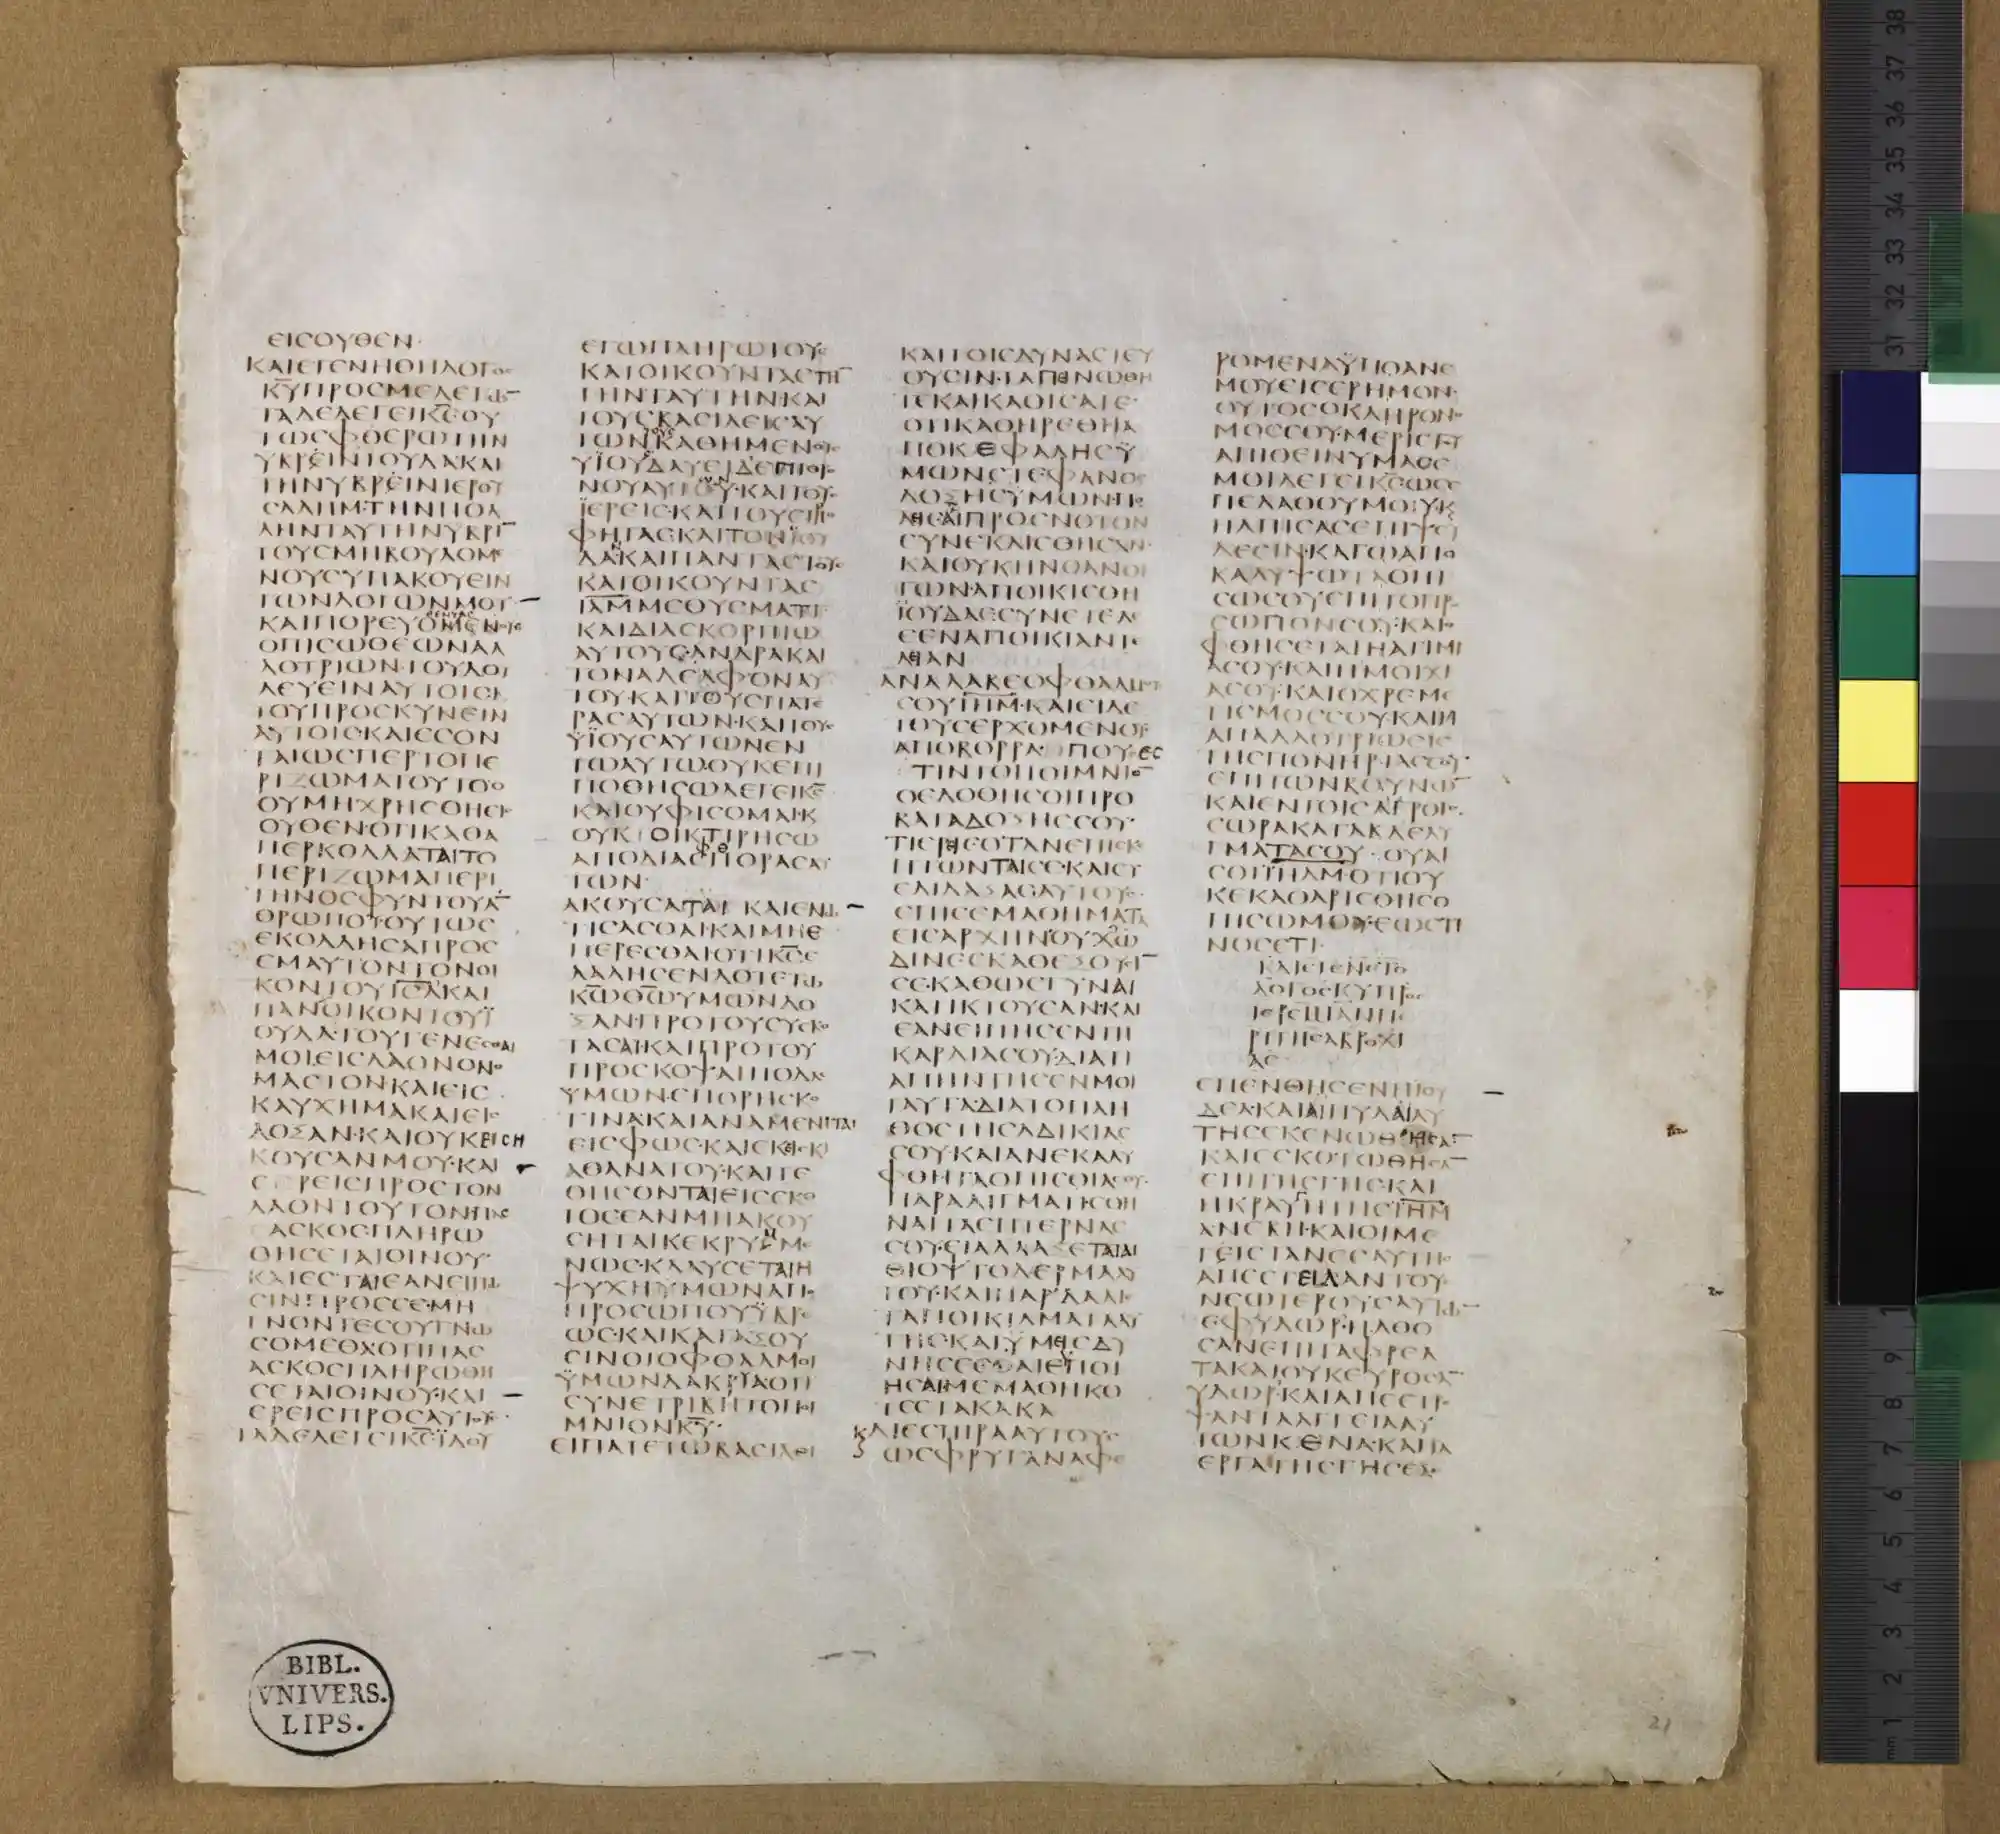 ΕΙϹΟΥΘΕΝ·
ΚΑΙΕΓΕΝΗΘΗΛΟΓΟϹ
ΚΥ̅ΠΡΟϹΜΕΛΕΓΩ̅
ΤΑΔΕΛΕΓΕΙΚϹ̅ΟΥ
ΤΩϹΦΘΕΡΩΤΗΝ
ΥΒΡΕΙΝΙΟΥΔΑΚΑΙ
ΤΗΝΥΒΡΕΙΝΙΕΡΟΥ
ϹΑΛΗΜ·ΤΗΝΠΟΛ
ΛΗΝΤΑΥΤΗΝΥΒΡΙ̅
ΤΟΥϹΜΗΒΟΥΛΟΜΕ
ΝΟΥϹΥΠΑΚΟΥΕΙΝ
ΤΩΝΛΟΓΩΝΜΟΥ
ΚΑΙΠΟΡΕΥΟΜΕΝΟΥϹ
ΟΠΙϹΩΘΕΩΝΑΛ
ΛΟΤΡΙΩΝ·ΤΟΥΔΟΥ
ΛΕΥΕΙΝΑΥΤΟΙϹΚΑΙ
ΤΟΥΠΡΟϹΚΥΝΕΙΝ
ΑΥΤΟΙϹ·ΚΑΙΕϹΟΝ
ΤΑΙΩϹΠΕΡΤΟΠΕ
ΡΙΖΩΜΑΤΟΥΤΟΟ
ΟΥΜΗΧΡΗϹΘΗϹΕΙ
ΟΥΘΕΝ·ΟΤΙΚΑΘΑ
ΠΕΡΚΟΛΛΑΤΑΙΤΟ
ΠΕΡΙΖΩΜΑΠΕΡΙ
ΤΗΝΟϹΦΥΝΤΟΥΑ̅
ΘΡΩΠΟΥΟΥΤΩϹ
ΕΚΟΛΛΗϹΑΠΡΟϹ
ΕΜΑΥΤΟΝΤΟΝΟΙ
ΚΟΝΤΟΥΙϹΛ̅ΚΑΙ
ΠΑΝΟΙΚΟΝΤΟΥΪ
ΟΥΔΑ·ΤΟΥΓΕΝΕϹΘΑΙ
ΜΟΙΕΙϹΛΑΟΝΟΝΟ
ΜΑϹΤΟΝΚΑΙΕΙϹ
ΚΑΥΧΗΜΑΚΑΙΕΙϹ
ΔΟΞΑΝ·ΚΑΙΟΥΚΕΙϹΗ
ΚΟΥϹΑΝΜΟΥ·ΚΑΙ
ΕΡΕΙϹΠΡΟϹΤΟΝ
ΛΑΟΝΤΟΥΤΟΝΠΑϹ
ΑϹΚΟϹΠΛΗΡΩ
ΘΗϹΕΤΑΙΟΙΝΟΥ·
ΚΑΙΕϹΤΑΙΕΑΝΕΙΠΩ
ϹΙΝΠΡΟϹϹΕ·ΜΗ
ΓΝΟΝΤΕϹΟΥΓΝΩ
ϹΟΜΕΘΑΟΤΙΠΑϹ
ΑϹΚΟϹΠΛΗΡΩΘΗ
ϹΕΤΑΙΟΙΝΟΥ·ΚΑΙ
ΕΡΕΙϹΠΡΟϹΑΥΤΟΥϹ·
ΤΑΔΕΛΕΓΕΙΚϹ̅ΪΔΟΥ
ΕΓΩΠΛΗΡΩΤΟΥϹ
ΚΑΤΟΙΚΟΥΝΤΑϹΤΗ̅
ΓΗΝΤΑΥΤΗΝ·ΚΑΙ
ΤΟΥϹΒΑϹΙΛΕΙϹΑΥ
ΤΩΝΚΑΘΗΜΕΝΟΥϹ
ΥΪΟΥΔΑΥΕΙΔΕΠΙΘΡΟ
ΝΟΥΑΥΤΟΥ·ΚΑΙΤΟΥϹ
ΪΕΡΕΙϹ·ΚΑΙΤΟΥϹΠΡΟ
ΦΗΤΑϹΚΑΙΤΟΝΪΟΥ
ΔΑΚΑΙΠΑΝΤΑϹΤΟΥϹ
ΚΑΤΟΙΚΟΥΝΤΑϹ
ΙΛΜ̅ΜΕΘΥϹΜΑΤΙ
ΚΑΙΔΙΑϹΚΟΡΠΙΩ
ΑΥΤΟΥϹ·ΑΝΔΡΑΚΑΙ
ΤΟΝΑΔΕΛΦΟΝΑΥ
ΤΟΥ·ΚΑΙΤΟΥϹΠΑΤΕ
ΡΑϹΑΥΤΩΝ·ΚΑΙΤΟΥϹ
ΥΪΟΥϹΑΥΤΩΝΕΝ
ΤΩΑΥΤΩΟΥΚΕΠΙ
ΠΟΘΗϹΩΛΕΓΕΙΚϹ̅
ΚΑΙΟΥΦΙϹΟΜΑΙ·Κ
ΟΥΚΟΙΚΤΙΡΗϹΩ
ΑΠΟΔΙΑϹΠΟΡΑϹΑΥ
ΤΩΝ·
ΑΚΟΥϹΑΤΑΙΚΑΙΕΝΩ
ΤΙϹΑϹΘΑΙ·ΚΑΙΜΗΕ
ΠΕΡΕϹΘΑΙΟΤΙΚϹ̅Ε
ΛΑΛΗϹΕΝΔΟΤΕΤΩ
ΚΩ̅ΘΩ̅ΥΜΩΝΔΟ
ΞΑΝ·ΠΡΟΤΟΥϹΥϹΚΟ
ΤΑϹΑΙ·ΚΑΙΠΡΟΤΟΥ
ΠΡΟϹΚΟΨΑΙΠΟΔΑϹ
ΥΜΩΝ·ΕΠΟΡΗϹΚΟ
ΤΙΝΑ·ΚΑΙΑΝΑΜΕΝΙΤΑΙ
ΕΙϹΦΩϹ·ΚΑΙΕΚΕΙϹΚΙ
ΑΘΑΝΑΤΟΥ·ΚΑΙΤΕ
ΘΗϹΟΝΤΑΙΕΙϹϹΚΟ
ΤΟϹΕΑΝΜΗΑΚΟΥ
ϹΗΤΑΙΚΕΚΡΥΜΜΕ
ΝΩϹ·ΚΛΑΥϹΕΤΑΙΗ
ΨΥΧΗΫΜΩΝΑΠΟ
ΠΡΟϹΩΠΟΥΫΒΡΕ
ΩϹ·ΚΑΙΚΑΤΑΞΟΥ
ϹΙΝΟΙΟΦΘΑΛΜΟΙ
ΫΜΩΝΔΑΚΡΥΑΟΤΙ
ϹΥΝΕΤΡΙΒΗΤΟΠΟΙ
ΜΝΙΟΝΚΥ̅·
ΕΙΠΑΤΕΤΩΒΑϹΙΛΕΙ
ΚΑΙΤΟΙϹΔΥΝΑϹΤΕΥ
ΟΥϹΙΝ·ΤΑΠΕΝΩΘΗ
ΤΕΚΑΙΚΑΘΙϹΑΤΕ·
ΟΤΙΚΑΘΗΡΕΘΗΑ
ΠΟΚΕΦΑΛΗϹΫ
ΜΩΝϹΤΕΦΑΝΟϹ
ΔΟΞΗϹΫΜΩΝ·ΠΟ
ΛΕΙϹΑΙΠΡΟϹΝΟΤΟΝ
ϹΥΝΕΚΛΙϹΘΗϹΑΝ·
ΚΑΙΟΥΚΗΝΟΑΝΟΙ
ΓΩΝ·ΑΠΟΙΚΙϹΘΗ
ΪΟΥΔΑϹϹΥΝΕΤΕΛΕ
ϹΕΝΑΠΟΙΚΙΑΝΤΕ
ΛΕΙΑΝ
ΑΝΑΛΑΒΕΟΦΘΑΛΜΟΥϹ
ϹΟΥΙΛΜ̅·ΚΑΙΕΙΔΕ
ΤΟΥϹΕΡΧΟΜΕΝΟΥϹ
ΑΠΟΒΟΡΡΑ·ΠΟΥΕϹ
ΤΙΝΤΟΠΟΙΜΝΙΟ̅
ΟΕΔΟΘΗϹΟΙΠΡΟ
ΒΑΤΑΔΟΞΗϹϹΟΥ·
ΤΙΕΡΕΙϹΟΤΑΝΕΠΙϹΚ
ΠΤΩΝΤΑΙϹΕ·ΚΑΙϹΥ
ΕΔΙΔΑΞΑϹΑΥΤΟΥϹ·
ΕΠΙϹΕΜΑΘΗΜΑΤΑ
ΕΙϹΑΡΧΗΝΟΥΧΩ
ΔΙΝΕϹΚΑΘΕΞΟΥϹΙ̅
ϹΕ·ΚΑΘΩϹΓΥΝΑΙ
ΚΑΤΙΚΤΟΥϹΑΝ·ΚΑΙ
ΕΑΝΕΙΠΗϹΕΝΤΗ
ΚΑΡΔΙΑϹΟΥ·ΔΙΑΤΙ
ΑΠΗΝΤΗϹΕΝΜΟΙ
ΤΑΥΤΑ·ΔΙΑΤΟΠΛΗ
ΘΟϹΤΗϹΑΔΙΚΙΑϹ
ϹΟΥ·ΚΑΙΑΝΕΚΑΛΥ
ΦΘΗΤΑΟΠΙϹΘΙΑϹΟΥ·
ΠΑΡΑΔΙΓΜΑΤΙϹΘΗ
ΝΑΙΤΑϹΠΤΕΡΝΑϹ
ϹΟΥ·ΕΙΑΛΛΑΞΕΤΑΙΑΙ
ΘΙΟΨΤΟΔΕΡΜΑΑΥ
ΤΟΥ·ΚΑΙΠΑΡΔΑΛΙϹ
ΤΑΠΟΙΚΙΛΜΑΤΑΑΥ
ΤΗϹ·ΚΑΙΫΜΕΙϹΔΥ
ΝΗϹΕϹΘΑΙΕΥΠΟΙ
ΗϹΑΙΜΕΜΑΘΗΚΟ
ΤΕϹΤΑΚΑΚΑ
ΚΑΙΕϹΠΙΡΑΑΥΤΟΥϹ
ΩϹΦΡΥΓΑΝΑΦΕ
ΡΟΜΕΝΑΫΠΟΑΝΕ
ΜΟΥΕΙϹΕΡΗΜΟΝ·
ΟΥΤΟϹΟΚΛΗΡΟϹ
ΜΟϹϹΟΥ·ΜΕΡΙϹΤΟΥ
ΑΠΙΘΕΙΝΥΜΑϹΕ
ΜΟΙΛΕΓΕΙΚϹ̅ΩϹΕ
ΠΕΛΑΘΟΥΜΟΥ·Κ
ΗΛΠΙϹΑϹΕΠΙΨΕΥ
ΔΕϹΙΝ·ΚΑΓΩΑΠΟ
ΚΑΛΥΨΩΤΑΟΠΙ
ϹΩϹΟΥΕΠΙΤΟΠΡΟ
ϹΩΠΟΝϹΟΥ·ΚΑΙΟ
ΦΘΗϹΕΤΑΙΗΑΤΙΜΙ
ΑϹΟΥ·ΚΑΙΗΜΟΙΧΙ
ΑϹΟΥ·ΚΑΙΟΧΡΕΜΕ
ΤΙϹΜΟϹϹΟΥ·ΚΑΙΗ
ΑΠΑΛΛΟΤΡΙΩϹΙϹ
ΤΗϹΠΟΝΗΡΙΑϹϹΟΥ·
ΕΠΙΤΩΝΒΟΥΝΩ̅
ΚΑΙΕΝΤΟΙϹΑΓΡΟΙϹ·
ΕΩΡΑΚΑΤΑΒΔΕΛΥ
ΓΜΑΤΑϹΟΥ·ΟΥΑΙ
ϹΟΙΙΛΜ̅·ΟΤΙΟΥ
ΚΕΚΑΘΑΡΙϹΘΗϹΟ
ΠΙϹΩΜΟΥ·ΕΩϹΤΙ
ΝΟϹΕΤΙ·
ΚΑΙΕΓΕΝΕΤΟ
ΛΟΓΟϹΚΥ̅ΠΡΟϹ
ΙΕΡΕΜΙΑΝΠΕ
ΡΙΤΗϹΑΒΡΟΧΙ
ΑϹ
ΕΠΕΝΘΗϹΕΝΗΪΟΥ
ΔΕΑ·ΚΑΙΑΙΠΥΛΑΙΑΥ
ΤΗϹΕΚΕΝΩΘΗϹΑ̅
ΚΑΙΕϹΚΟΤΩΘΗϹΑ̅
ΕΠΙΤΗϹΓΗϹ·ΚΑΙ
ΗΚΡΑΥΓΗΤΗϹΙΛΗΜ̅
ΑΝΕΒΗ·ΚΑΙΟΙΜΕ
ΓΙϹΤΑΝΕϹΑΥΤΗϹ
ΑΠΕϹΤΕΙΛΑΝΤΟΥϹ
ΝΕΩΤΕΡΟΥϹΑΥΤΩ̅
ΕΦΥΔΩΡ·ΗΛΘΟ
ϹΑΝΕΠΙΤΑΦΡΕΑ
ΤΑΚΑΙΟΥΚΕΥΡΟϹΑ̅
ΥΔΩΡ·ΚΑΙΑΠΕϹΤΡΕ
ΨΑΝΤΑΑΓΓΕΙΑΑΥ
ΤΩΝΚΕΝΑ·ΚΑΙΤΑ
ΕΡΓΑΤΗϹΓΗϹΕΞΕ
BIBL.
VNIVERS.
LIPS.
21